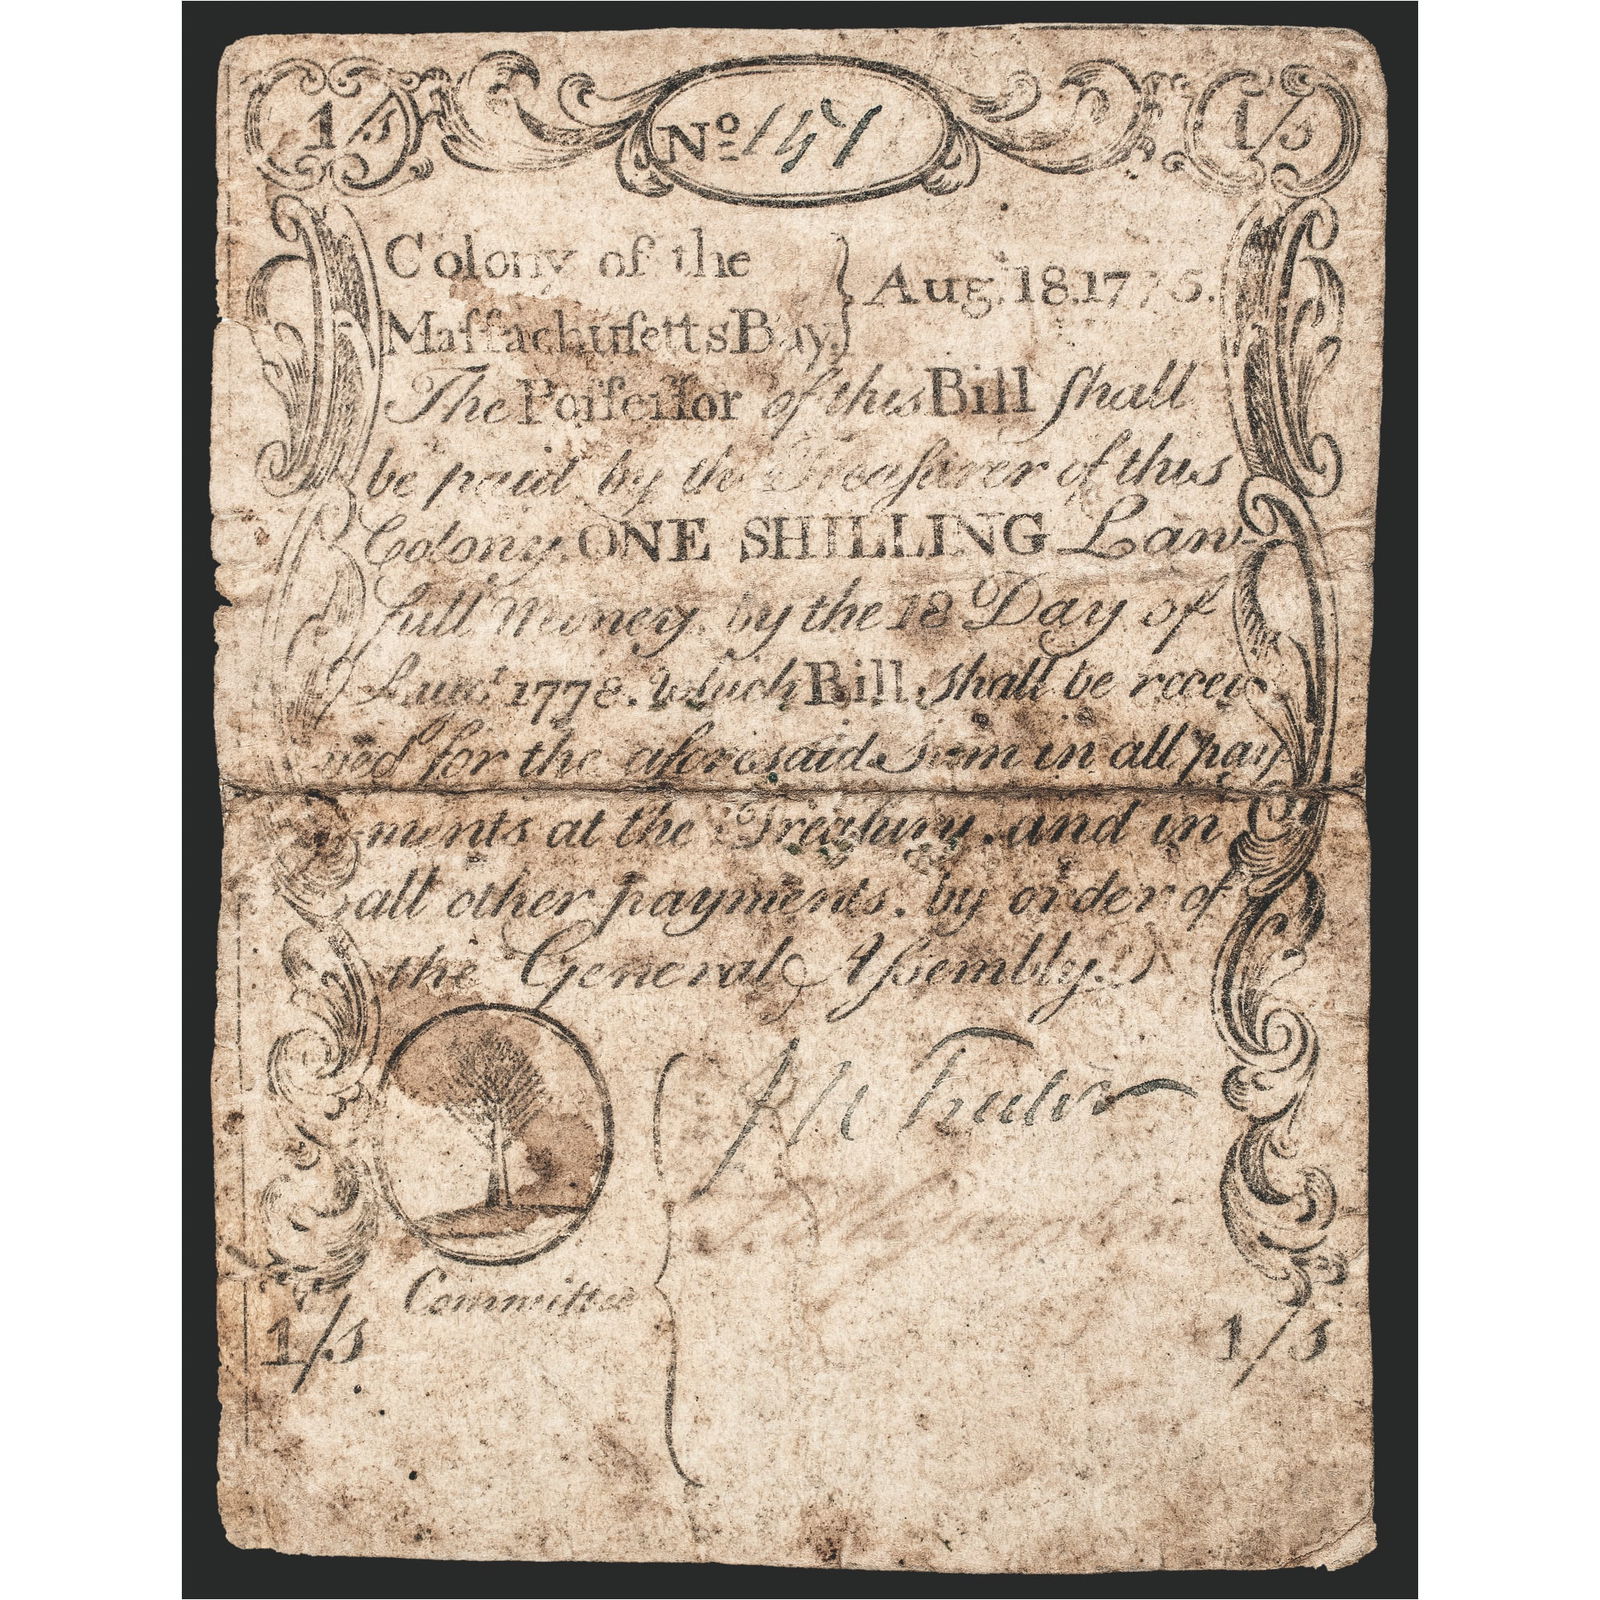 1/s No 1/s
Colony of the } Aug. 18. 1775.
Maſſachuſetts Bay.
The Poſſeſſor of this Bill ſhall
be paid by the Treaſurer of this
Colony. ONE SHILLING Law-
full Money. by the 18 Day of
Augt. 1778. which Bill, shall be recei-
ved for the aforesaid Sum in all pay
-ments at the Treaſury. and in
all other payments. by order of
the General Aſsembly.
Committee
1/s 1/s